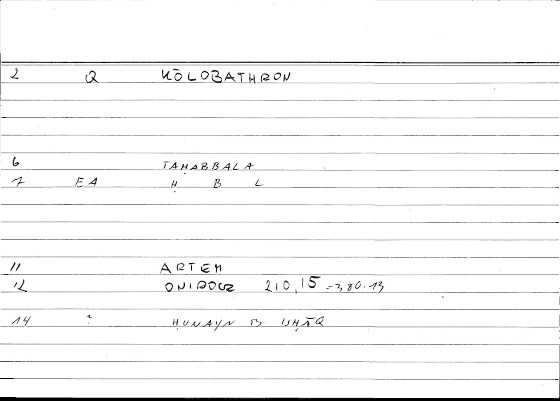 2 Q KŌLOBATHRON
6 TAḤABBALA
7 EA Ḥ B L
11 ARTEM
12 ONIROCR 210,15 = 3,80.13
14 ḤUNAYN B ISḤĀQ